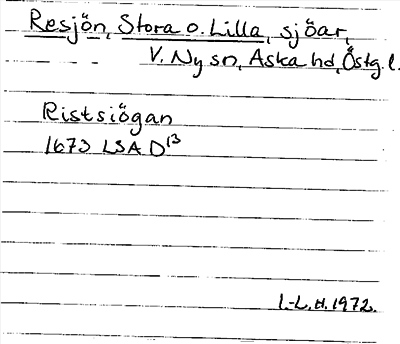 Resjön, Stora o. Lilla, sjöar,
V. Ny sn, Aska hd, Östg. l.
Ristsiögan
1673 LSA D13
I.-L. H. 1972.